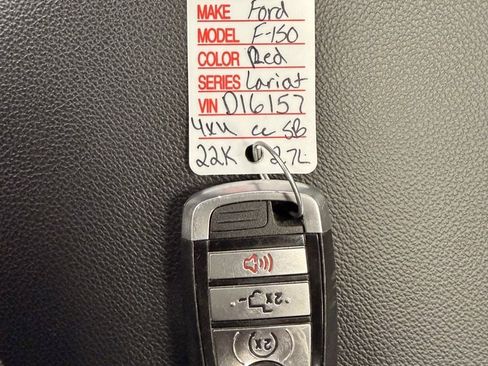 MAKE Ford
MODEL F-150
COLOR Red
SERIES Lariat
VIN D16157
4x4 cc SB
22K 2.7L
2x
2x